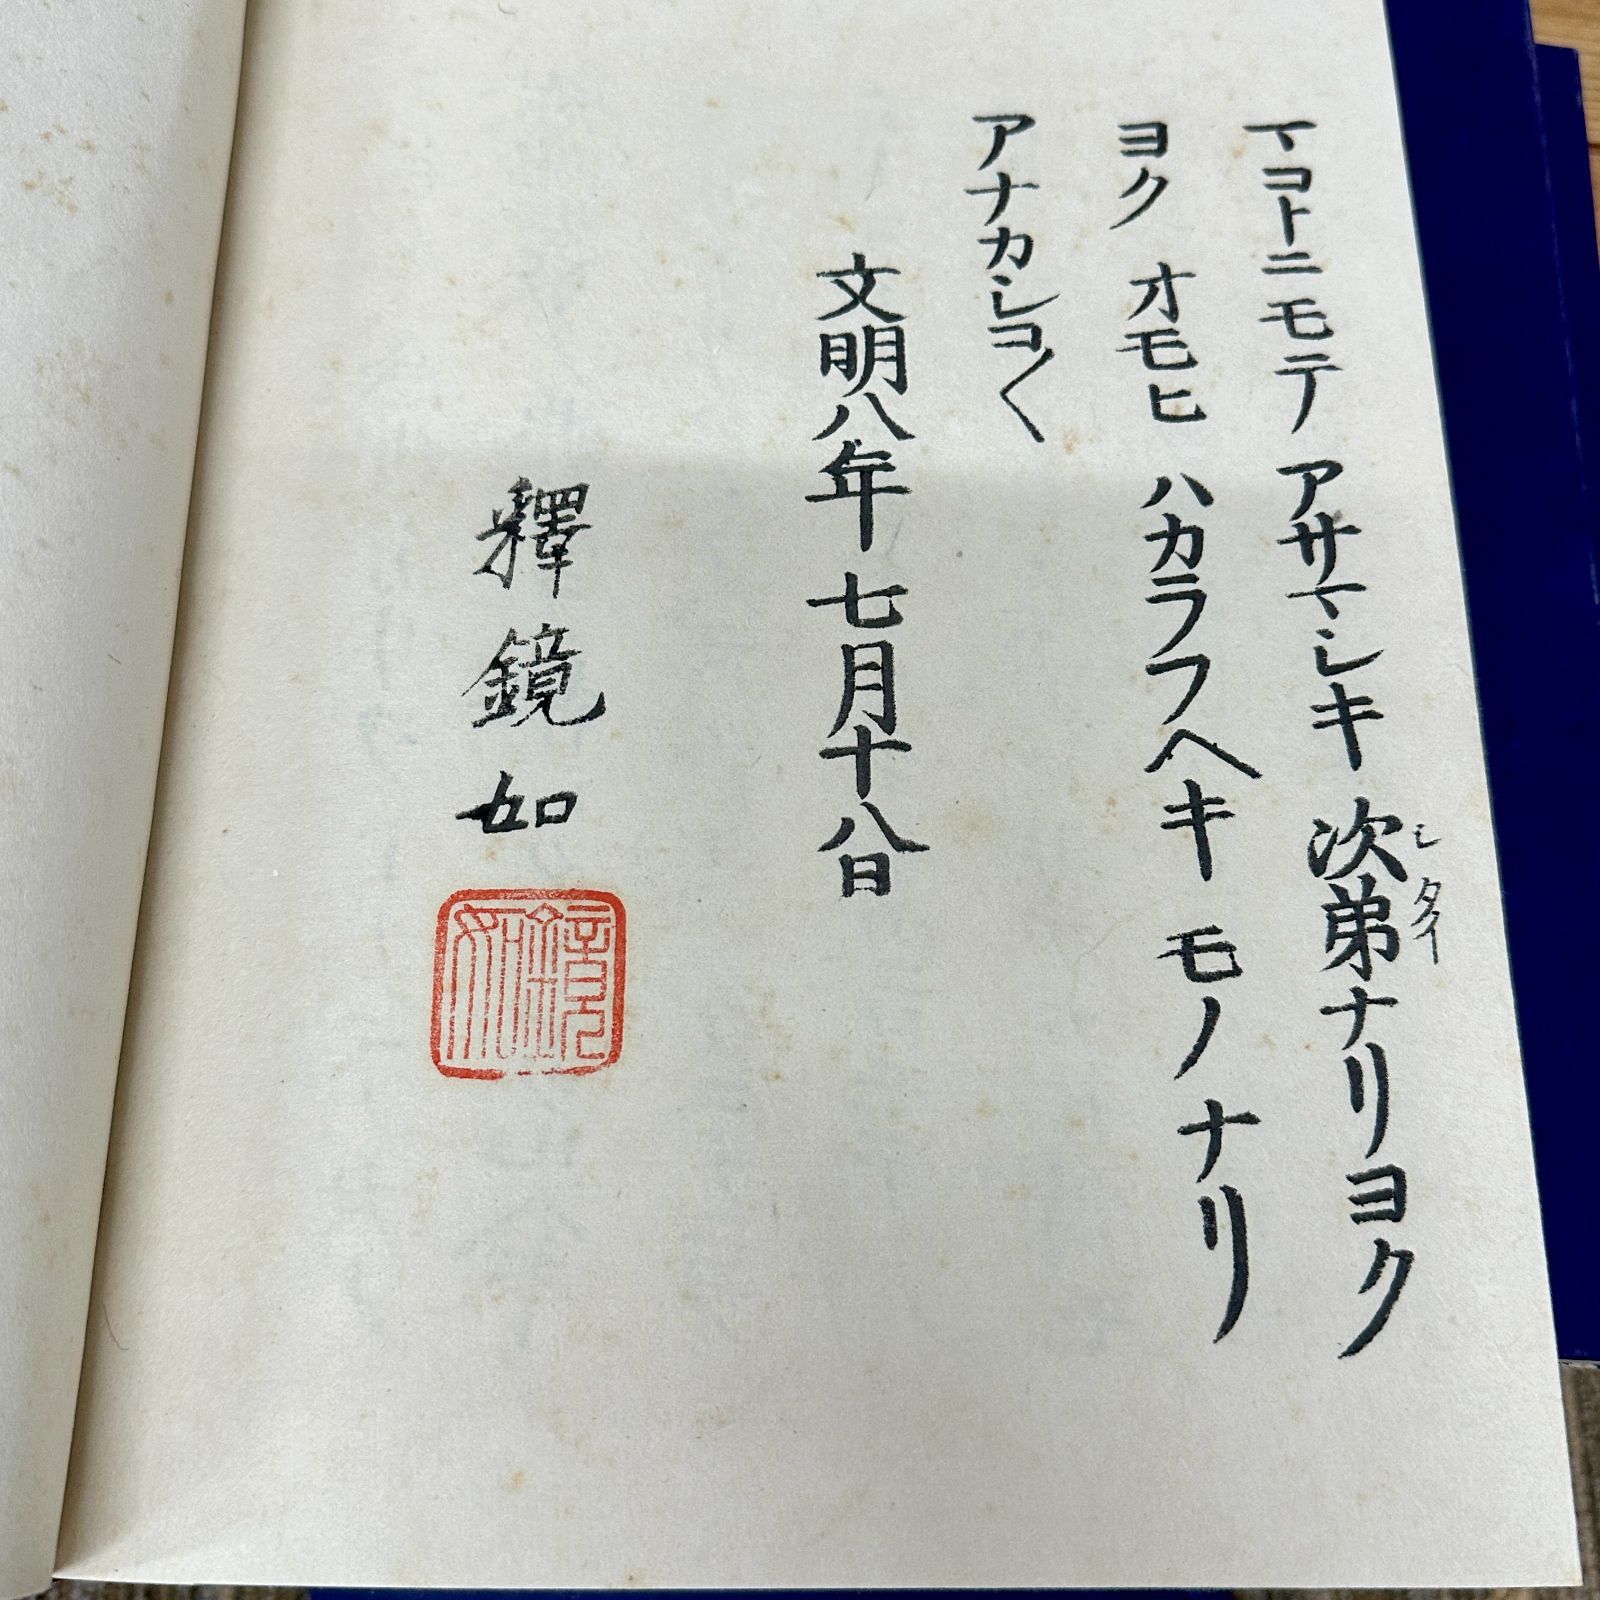 マコトニモテ アサマシキ 次弟ナリヨク
シタイ
ヨク オモヒ ハカラフヘキ モノ ナリ
アナカシコ〱
文明八年 七月十八日
釋鏡如
鏡如